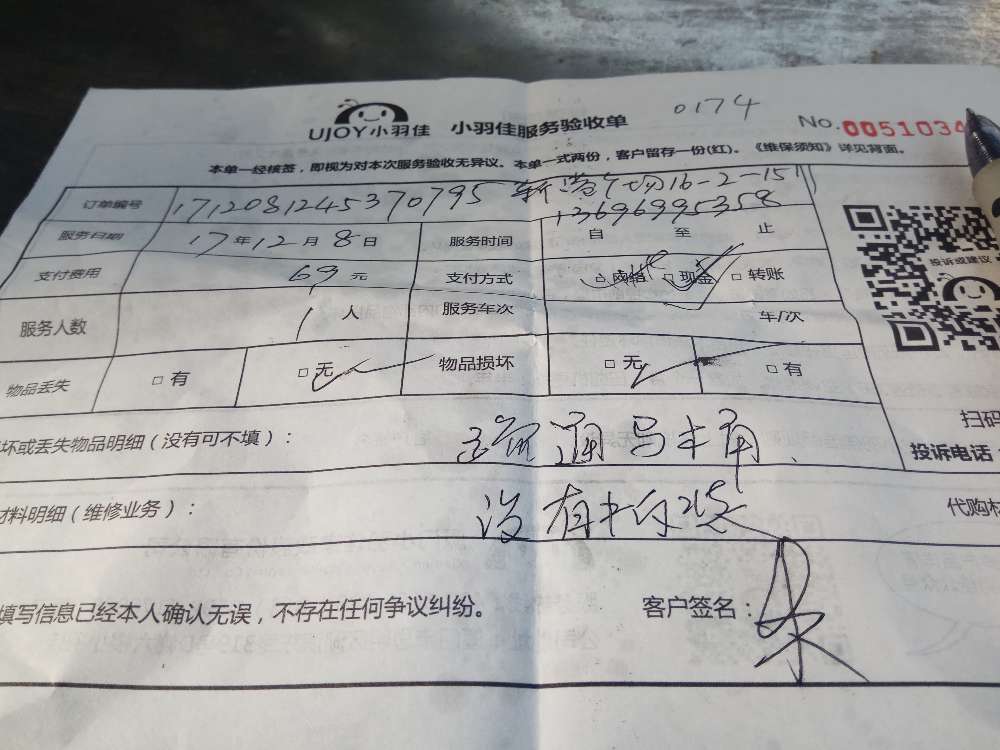 UJOY小羽佳 小羽佳服务验收单 0174 No.0051034
本单一经核签，即视为对本次服务验收无异议。本单一式两份，客户留存一份(红)。《维保须知》详见背面。
订单编号 1712081245370795 16-2-151
13696995358
服务日期 17年12月8日 服务时间 自 至 止
支付费用 69元 支付方式 □网络 □现金 □转账
投诉或建议
服务人数 1人 服务车次 车/次
物品丢失 □有 □无 物品损坏 □无 □有
坏或丢失物品明细（没有可不填）： 通马
扫码
投诉电话：
材料明细（维修业务）： 没有
代购材
填写信息已经本人确认无误，不存在任何争议纠纷。 客户签名：